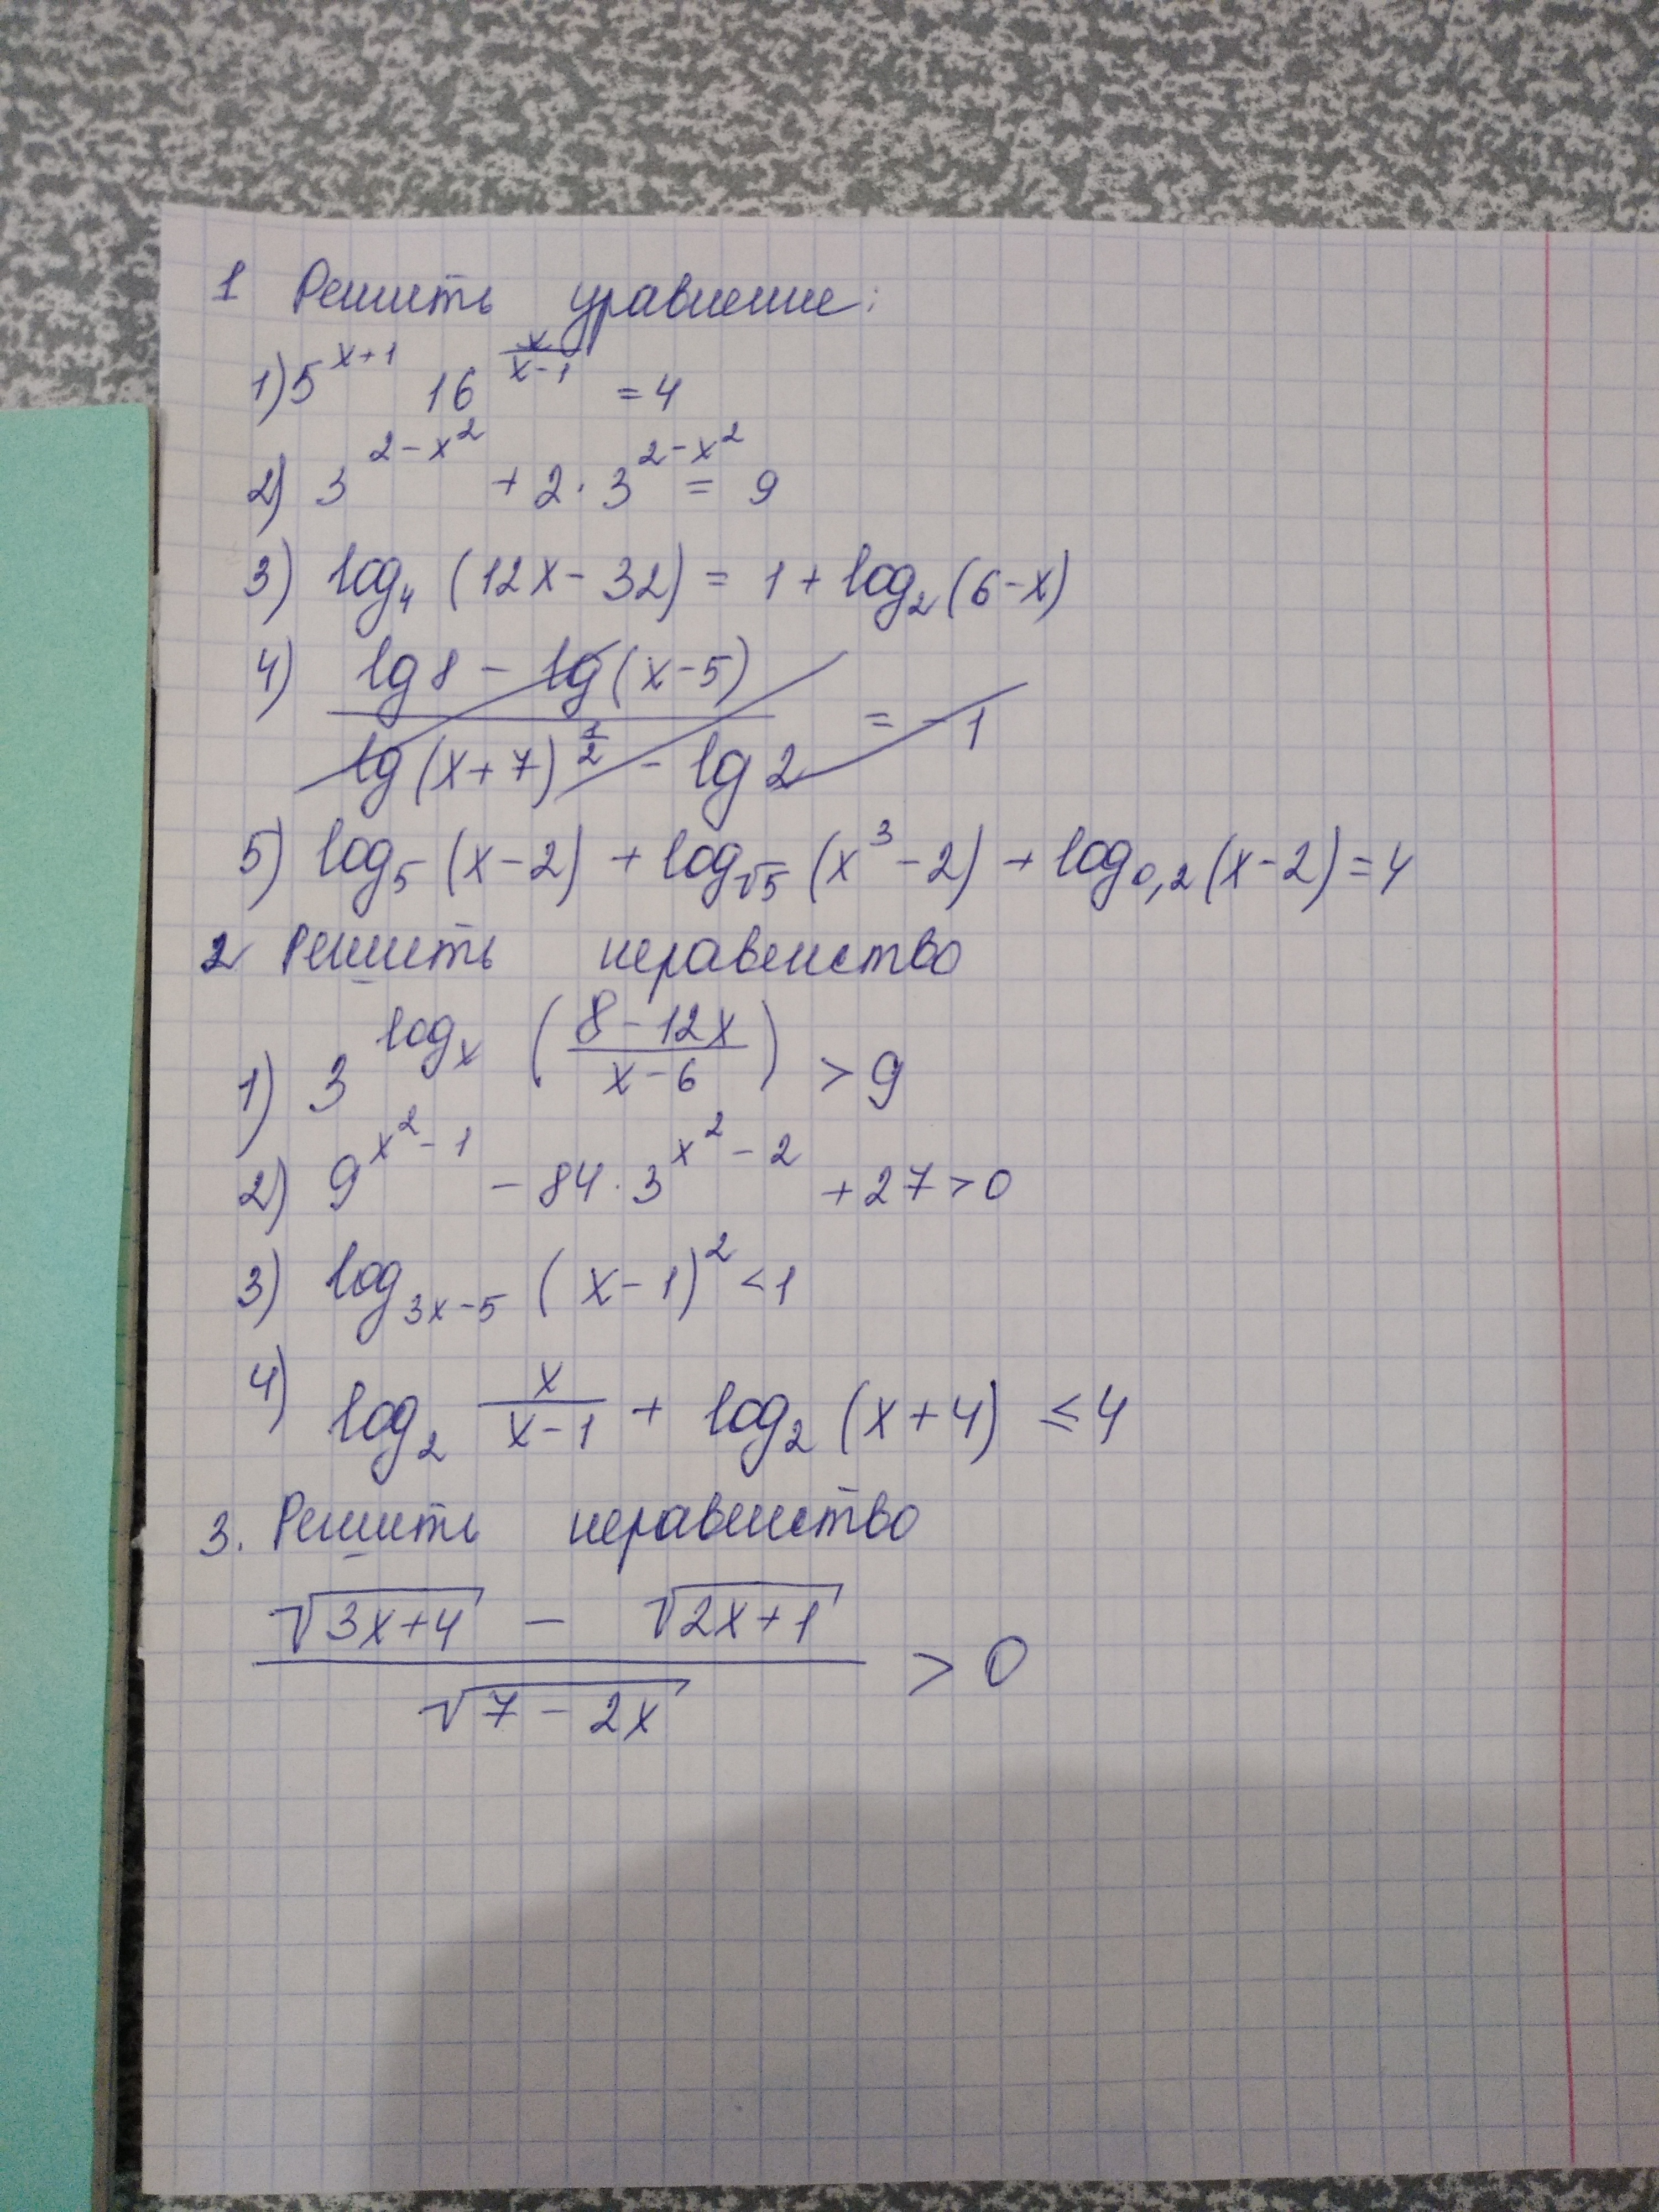 1 Решить уравнение:
1) 5^{x+1} 16^{\frac{x}{x-1}} = 4
2) 3^{2-x^2} + 2 · 3^{2-x^2} = 9
3) log_4 (12x - 32) = 1 + log_2 (6 - x)
4) \frac{lg 8 - lg (x - 5)}{lg (x + 7)^{\frac{1}{2}} - lg 2} = -1
5) log_5 (x - 2) + log_{√5} (x^3 - 2) + log_{0,2} (x - 2) = 4
2 Решить неравенство
1) 3^{log_x (\frac{8 - 12x}{x - 6})} > 9
2) 9^{x^2 - 1} - 84 · 3^{x^2 - 2} + 27 > 0
3) log_{3x-5} (x - 1)^2 < 1
4) log_2 \frac{x}{x - 1} + log_2 (x + 4) ≤ 4
3. Решить неравенство
\frac{√(3x + 4) - √(2x + 1)}{√(7 - 2x)} > 0